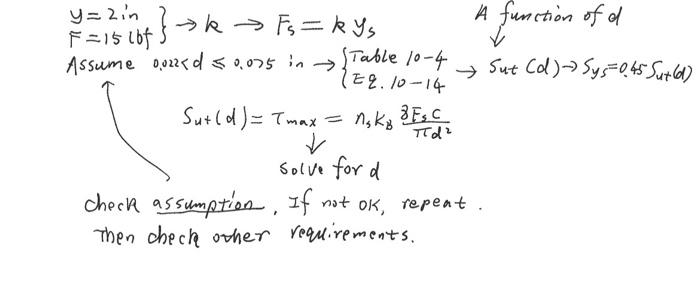 y = 2 in
F = 15 lbf } → k → Fs = k ys
A function of d
Assume 0.022 < d ≤ 0.075 in → { Table 10-4 Eq. 10-14 → Sut (d) → Sys = 0.45 Sut(d)
Sut(d) = τmax = ns kB 8Fs C / πd²
solve for d
check assumption, If not OK, repeat.
Then check other requirements.